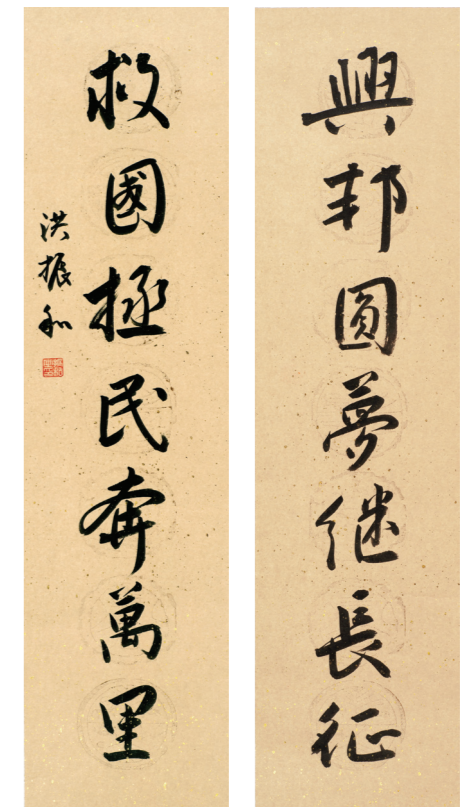 興邦圓夢继長征
救國拯民奔萬里
洪振和